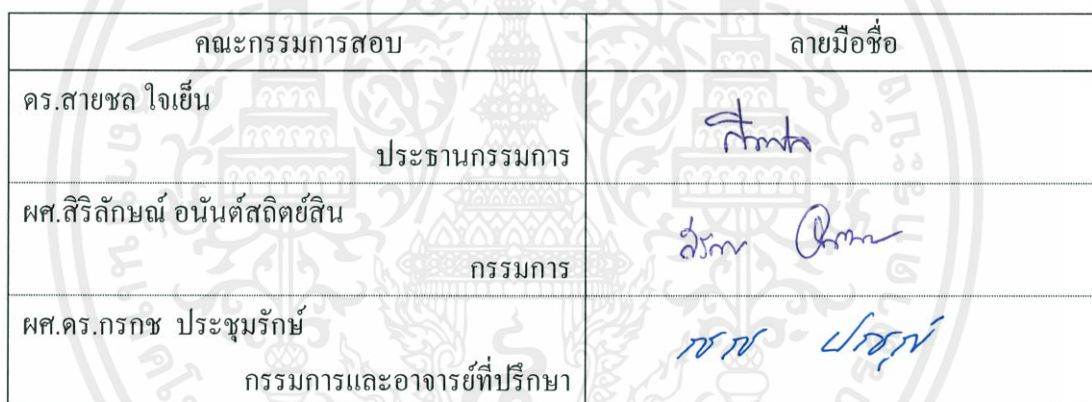 คณะกรรมการสอบ ลายมือชื่อ
ดร.สายชล ใจเย็น
ประธานกรรมการ
ผศ.สิริลักษณ์ อนันต์สถิตย์สิน
กรรมการ
ผศ.ดร.กรกช ประชุมรักษ์
กรรมการและอาจารย์ที่ปรึกษา